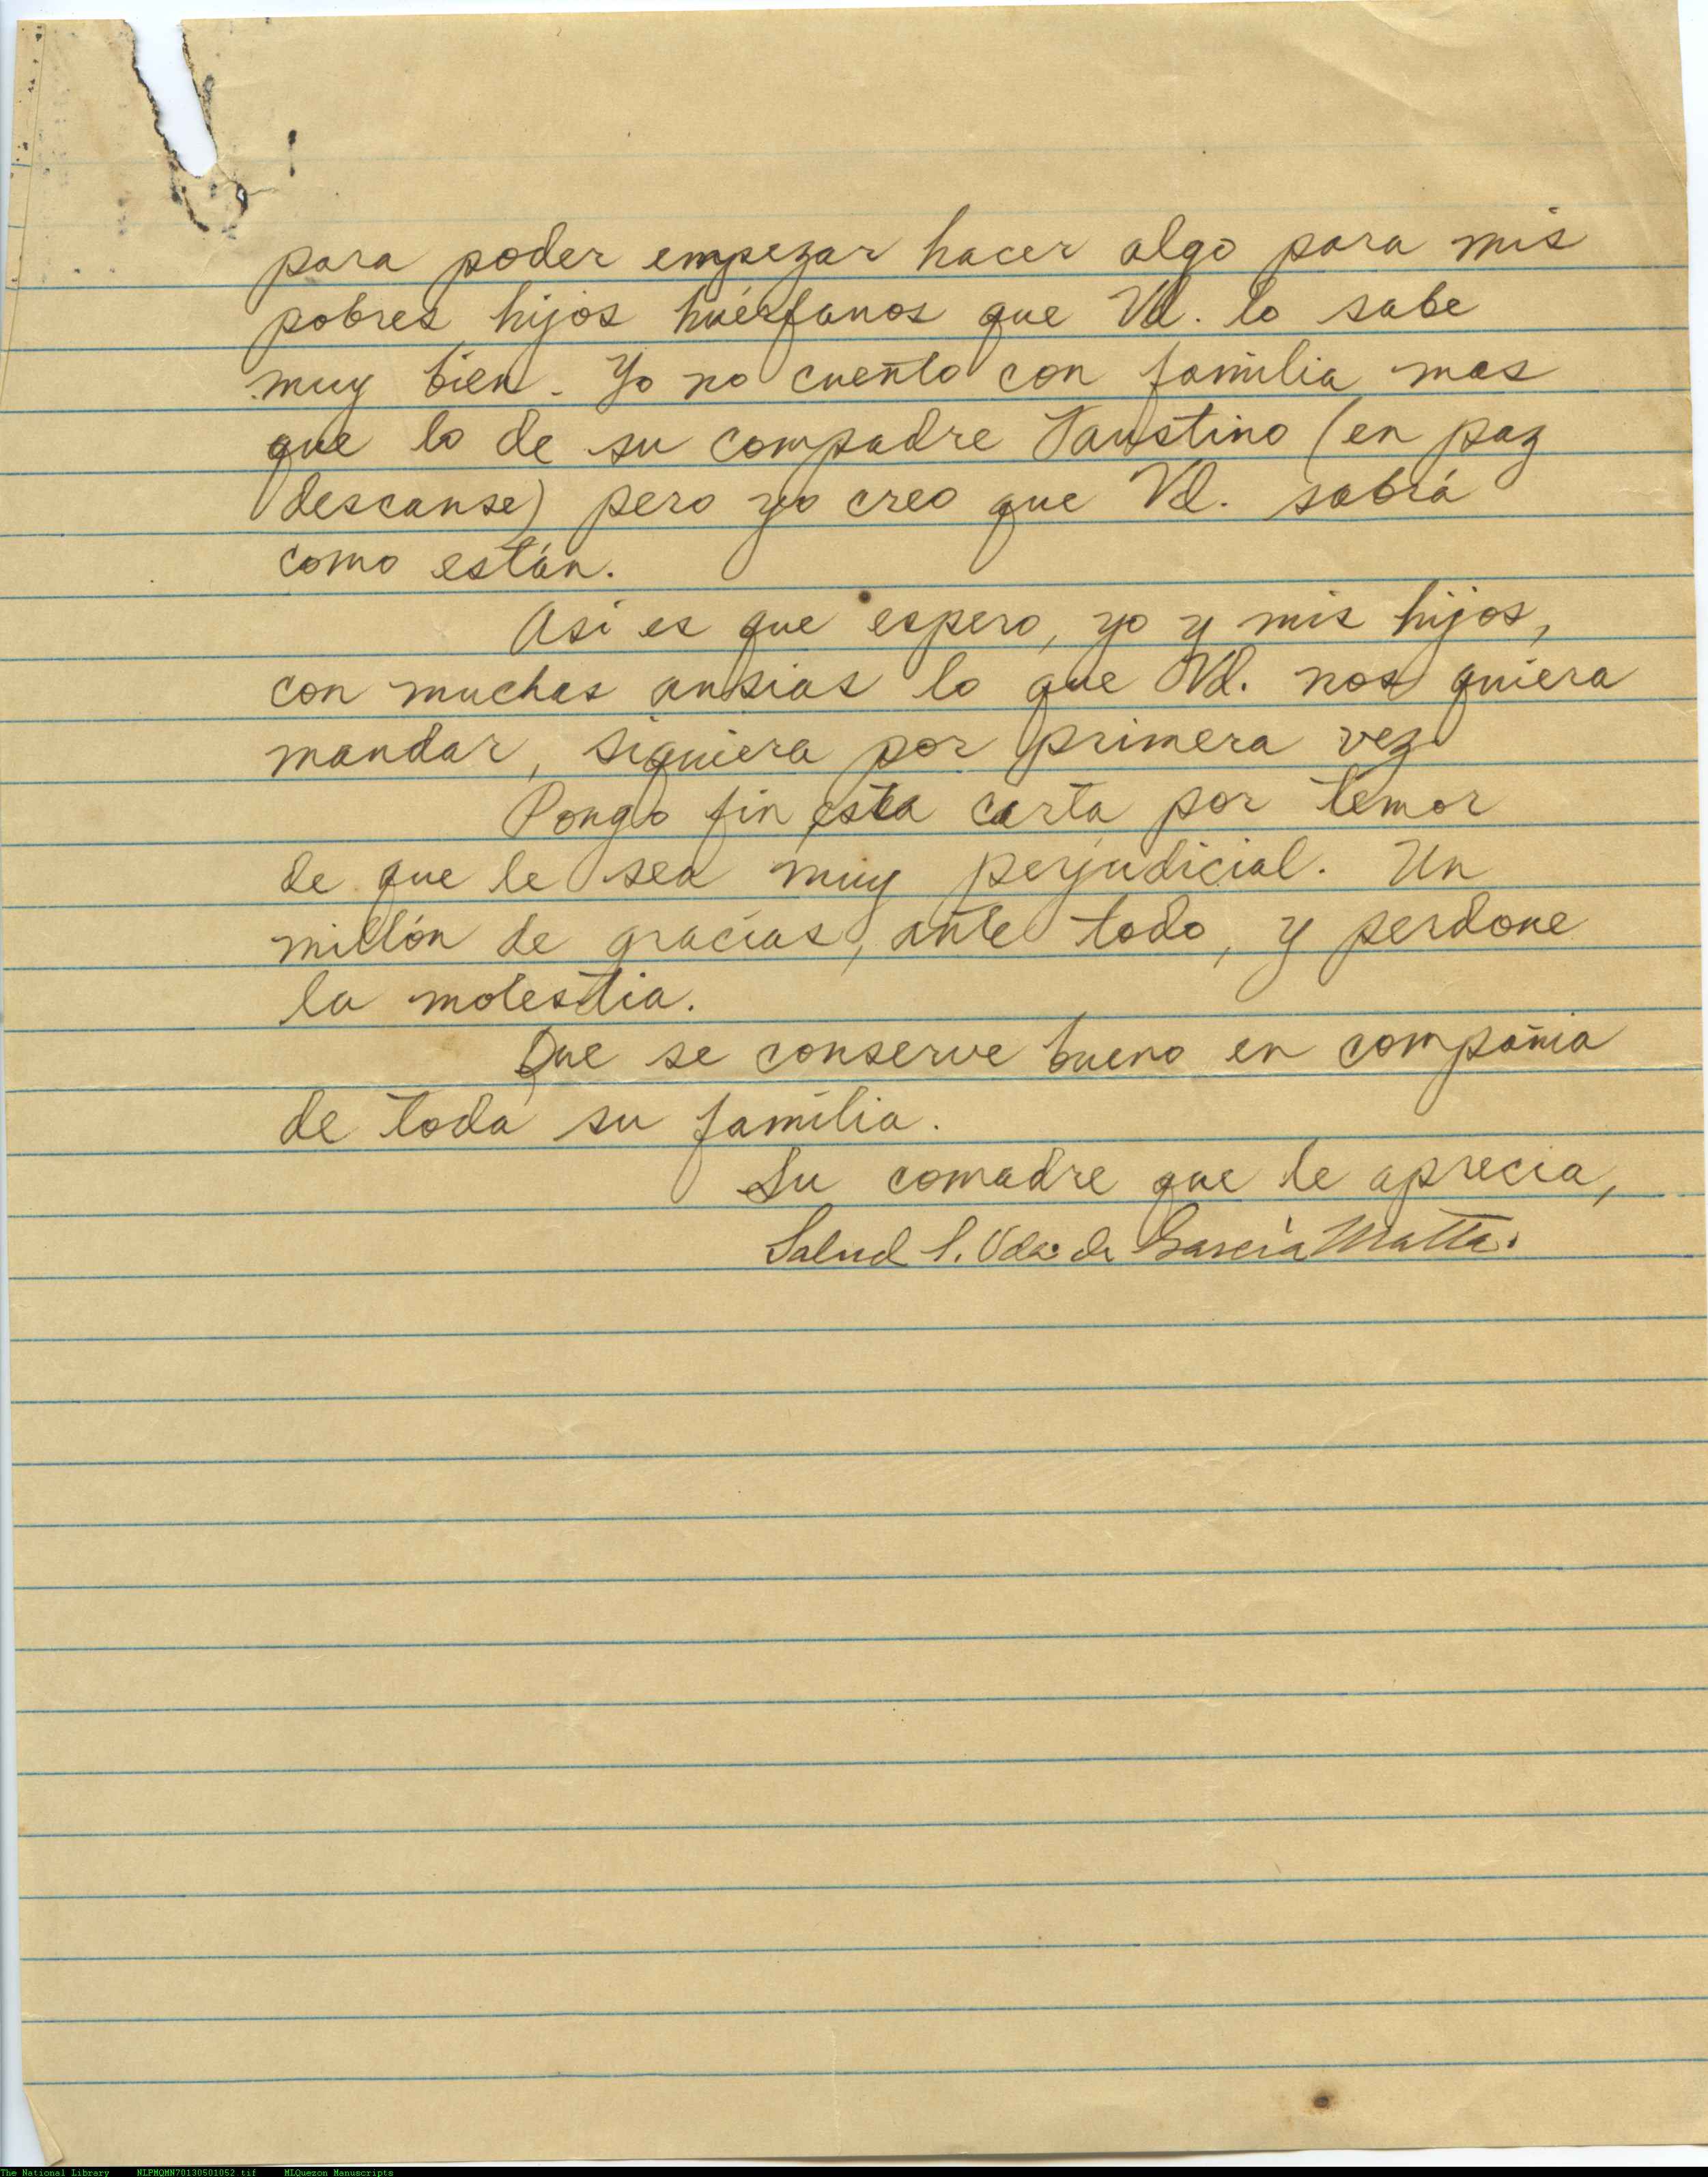 para poder empezar hacer algo para mis
pobres hijos huérfanos que Vd. lo sabe
muy bien. Yo no cuento con familia mas
que lo de su compadre Faustino (en paz
descanse) pero yo creo que Vd. sabrá
como están.
Asi es que espero, yo y mis hijos,
con muchas ansias lo que Vd. nos quiera
mandar, siquiera por primera vez.
Pongo fin esta carta por temor
de que le sea muy perjudicial. Un
millón de gracias, ante todo, y perdone
la molestia.
Que se conserve bueno en compañia
de toda su familia.
Su comadre que le aprecia,
Salud S. Vda. de García Matta.
The National Library NLPMQMN70130501052.tif MLQuezon Manuscripts